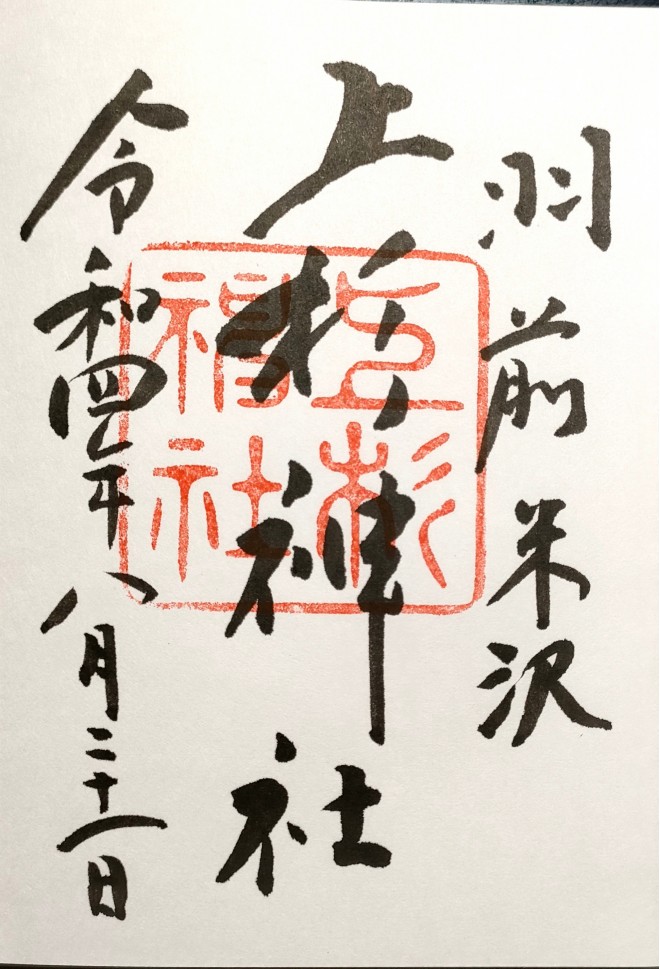 羽前米沢
上杉神社
令和四年八月二十一日
上杉神社